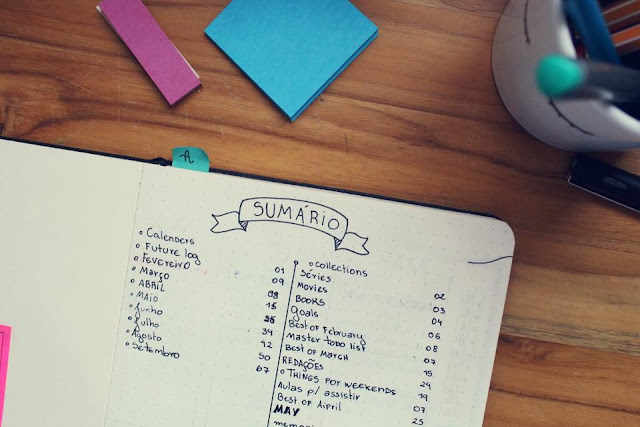 SUMÁRIO
Calenders
Future log
Fevereiro
Março
ABRIL
MAIO
Junho
Julho
Agosto
Setembro
01
09
15
34
42
50
67
Collections
Séries
Movies
BOOKS
Goals
Best of February
Master todo list
Best of March
REDAÇÕES
THINGS FOR WEEKENDS
Aulas p/ assistir
Best of Aipril
MAY
02
03
04
06
08
07
15
24
19
07
25